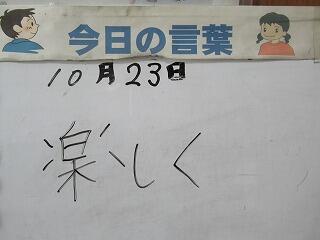 今日の言葉
10月23日
楽しく